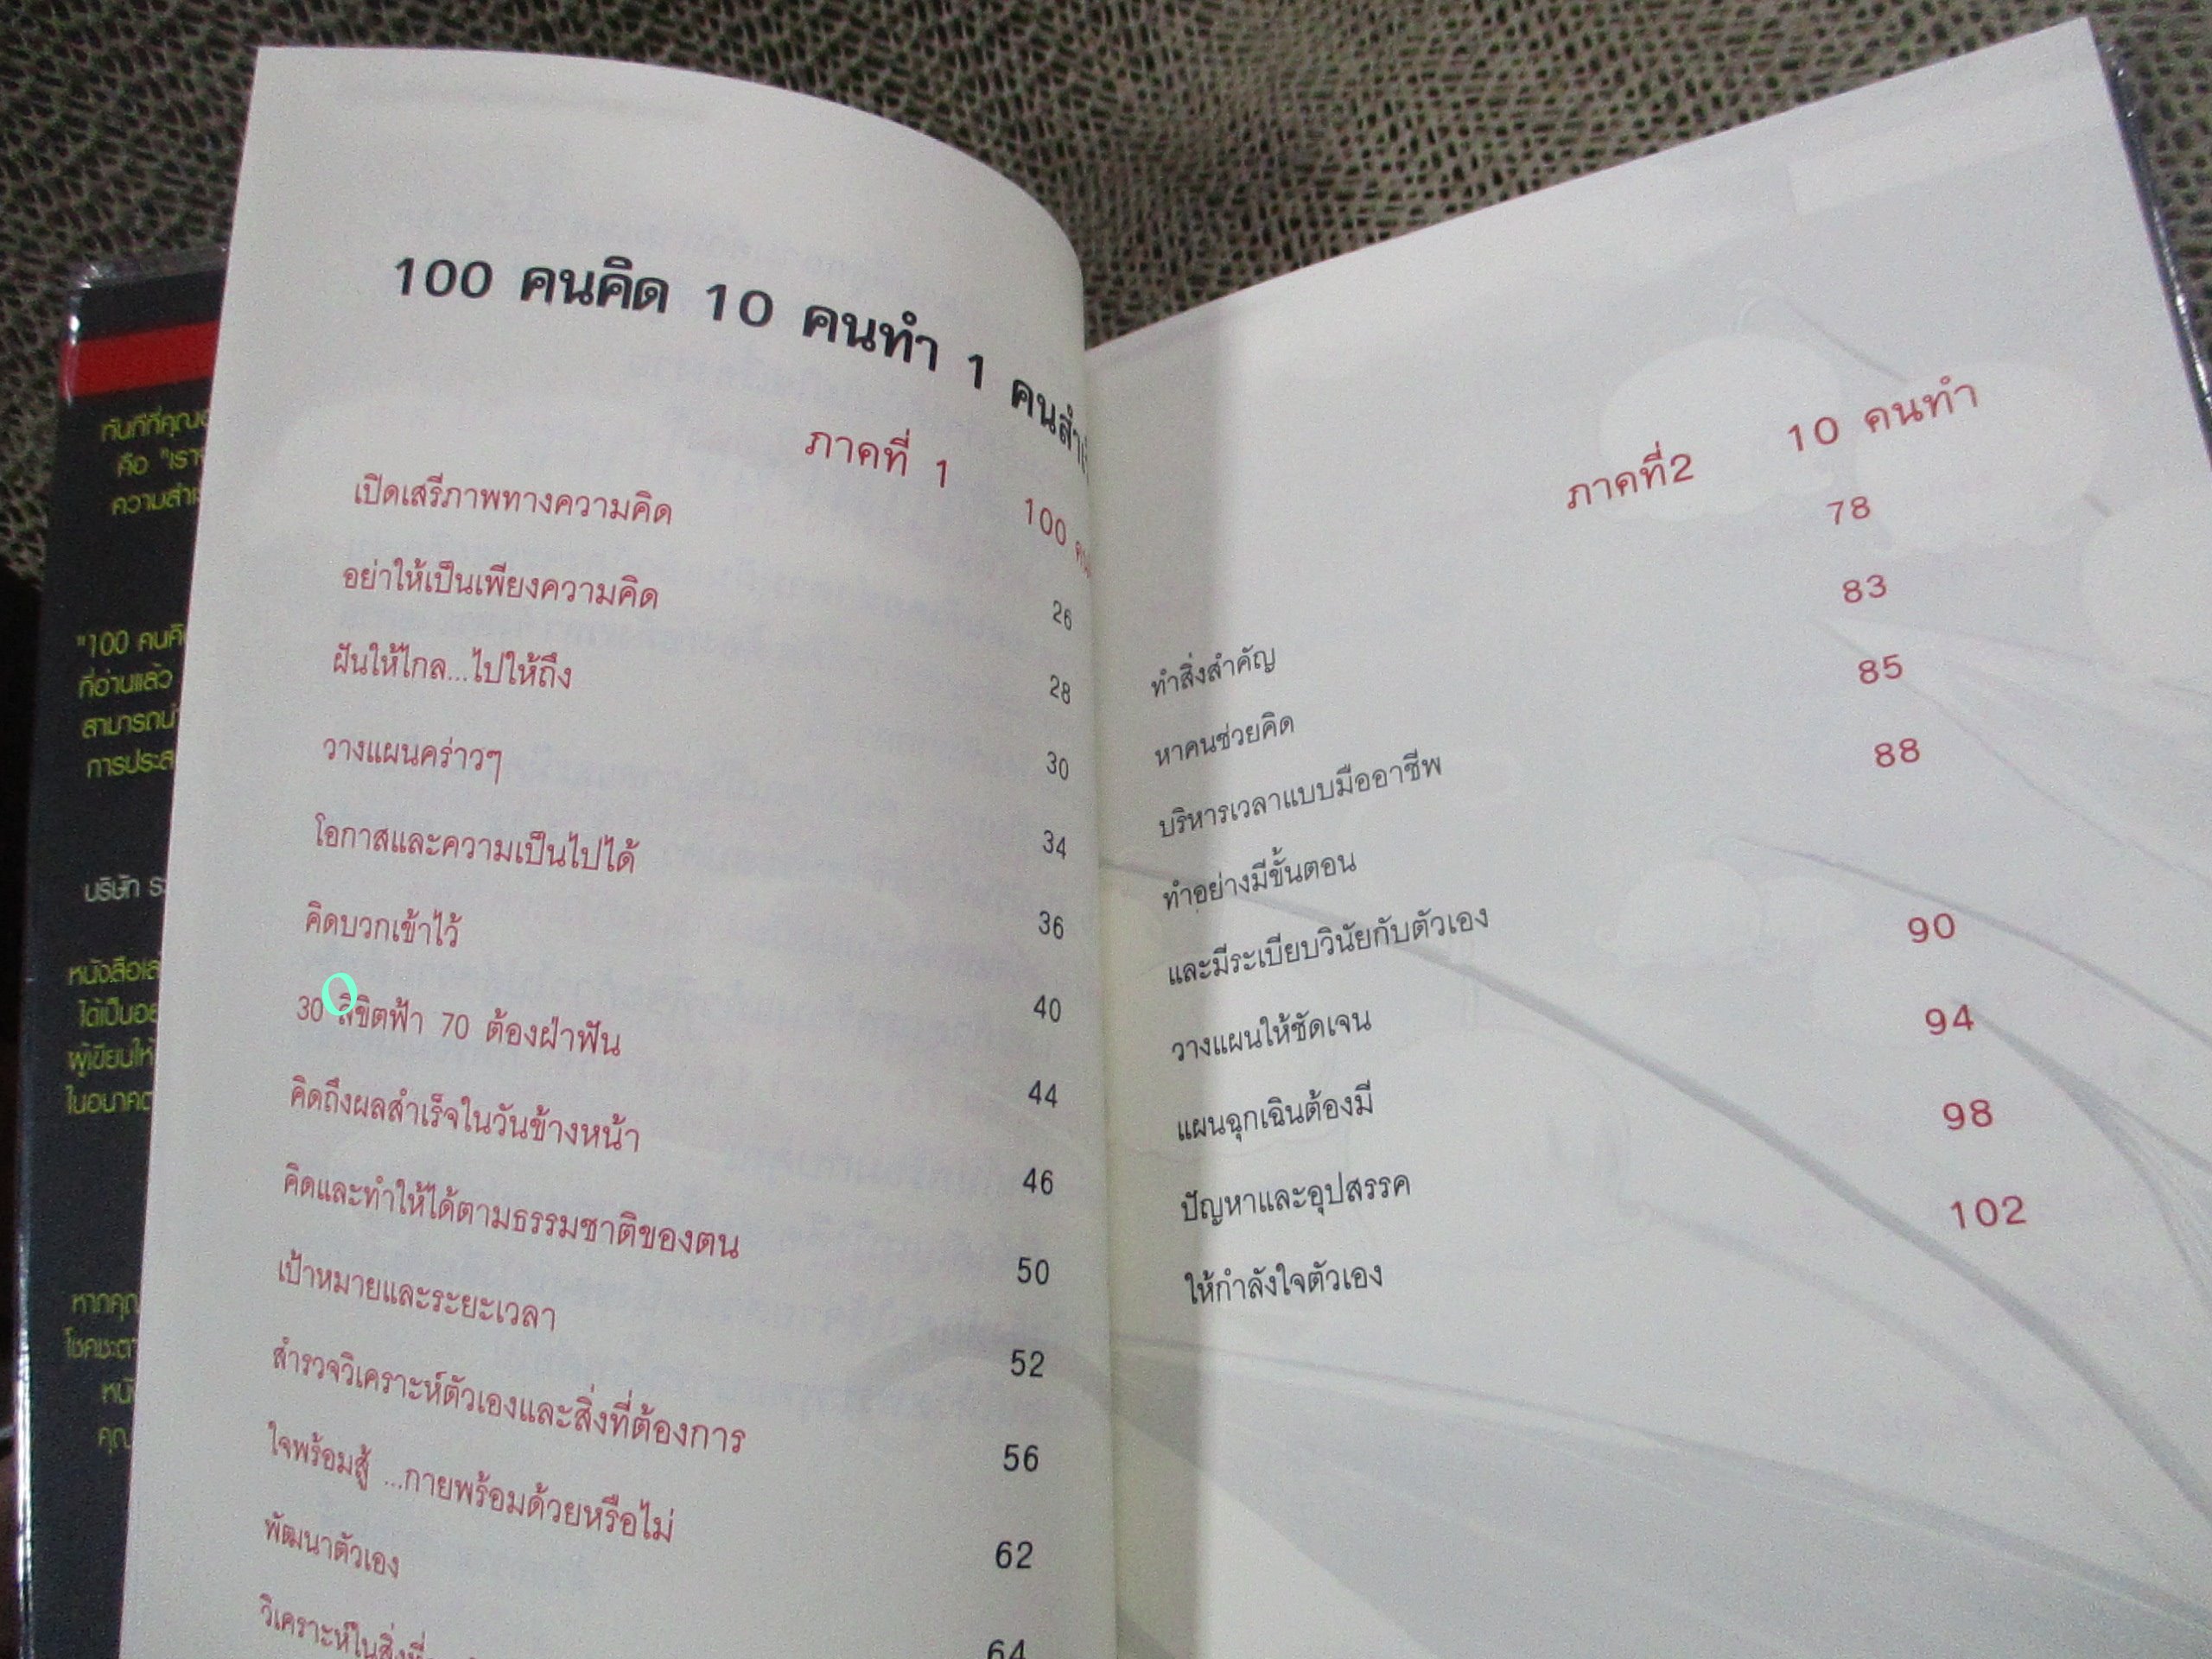 100 คนคิด 10 คนทำ 1
ภาคที่ 1 100
เปิดเสรีภาพทางความคิด
อย่าให้เป็นเพียงความคิด 26
ฝันให้ไกล...ไปให้ถึง 28
วางแผนคร่าวๆ 30
โอกาสและความเป็นไปได้ 34
คิดบวกเข้าไว้ 36
30 ลิขิตฟ้า 70 ต้องฝ่าฟัน 40
คิดถึงผลสำเร็จในวันข้างหน้า 44
คิดและทำให้ได้ตามธรรมชาติของตน 46
เป้าหมายและระยะเวลา 50
สำรวจวิเคราะห์ตัวเองและสิ่งที่ต้องการ 52
ใจพร้อมสู้ ...กายพร้อมด้วยหรือไม่ 56
พัฒนาตัวเอง 62
64
ภาคที่2 10 คนทำ
ทำสิ่งสำคัญ 78
หาคนช่วยคิด 83
บริหารเวลาแบบมืออาชีพ 85
ทำอย่างมีขั้นตอน 88
และมีระเบียบวินัยกับตัวเอง
วางแผนให้ชัดเจน 90
แผนฉุกเฉินต้องมี 94
ปัญหาและอุปสรรค 98
ให้กำลังใจตัวเอง 102
"100
ที่อ่านแล้ว
บริษัท